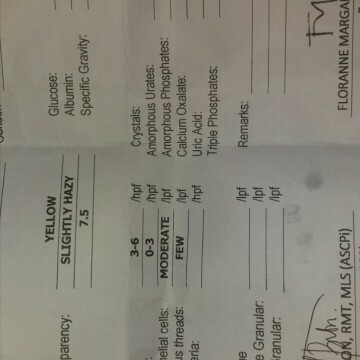 YELLOW
SLIGHTLY HAZY
parency:
7.5
Glucose:
Albumin:
Specific Gravity:
3-6 /hpf
0-3 /hpf
helial cells: MODERATE /lpf
us threads: FEW /lpf
eria: /hpf
Crystals:
Amorphous Urates:
Amorphous Phosphates:
Calcium Oxalate:
Uric Acid:
Triple Phosphates:
ne /lpf
e Granular: /lpf
Granular: /lpf
Remarks:
N, RMT, MLS (ASCPi)
FLORANNE MARGA